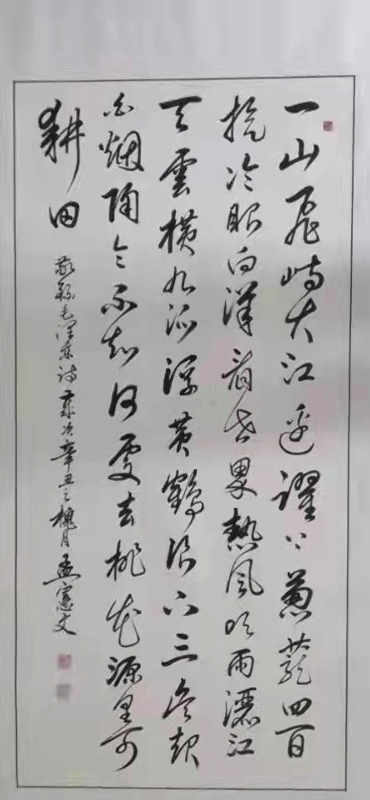 一山飛峙大江邊躍上葱蘢四百
旋冷眼向洋看世界熱風吹雨灑江
天雲橫九派浮黃鶴浪下三吳起
白烟陶令不知何處去桃花源里可
耕田
敬録毛澤東詩歲次辛丑之槐月孟憲文